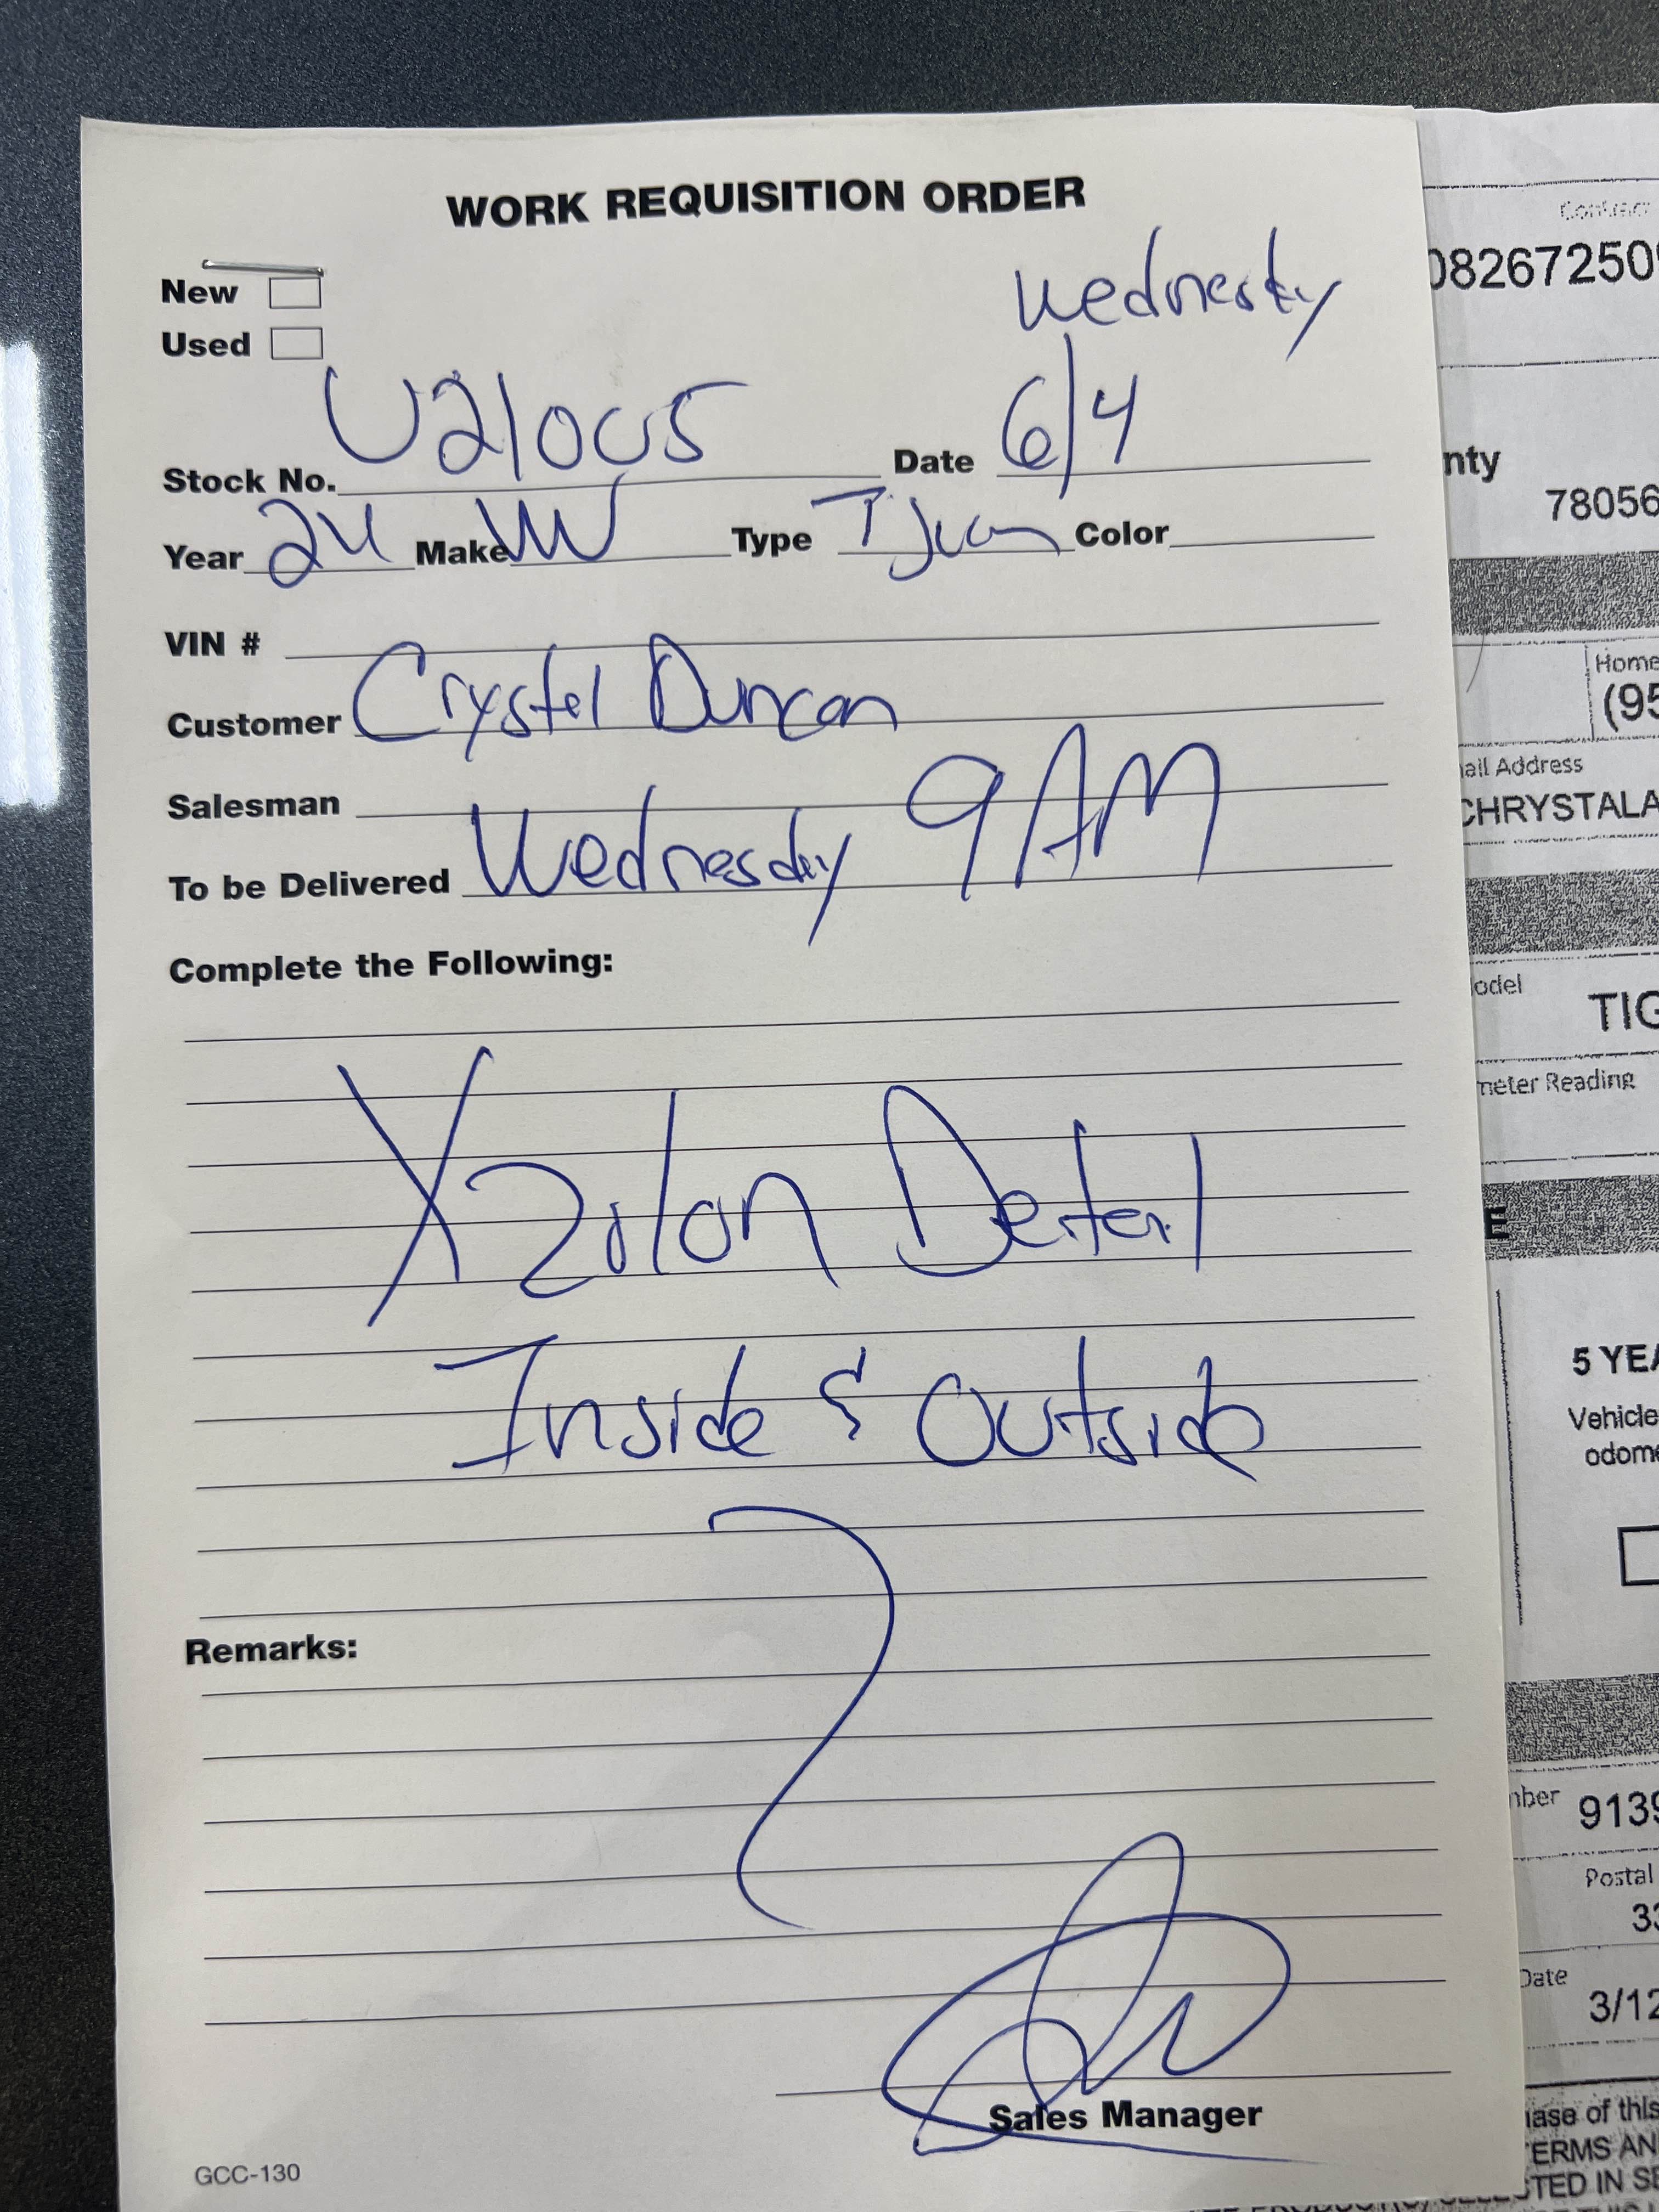 WORK REQUISITION ORDER
New
Used
Wednesday
Stock No. U210US Date 6/4
Year 24 Make VW Type Color
VIN #
Customer Crystel Duncan
Salesman
To be Delivered Wednesday 9 AM
Complete the Following:
Xzilon Detail
Inside & Outside
Remarks:
Sales Manager
GCC-130
Contract
082672509
nty
78056
Home
(95
ail Address
CHRYSTALA
odel
TIG
meter Reading
E
5 YEA
Vehicle
odome
nber 9139
Postal
33
Date
3/12
ase of this
TERMS AN
TED IN SE